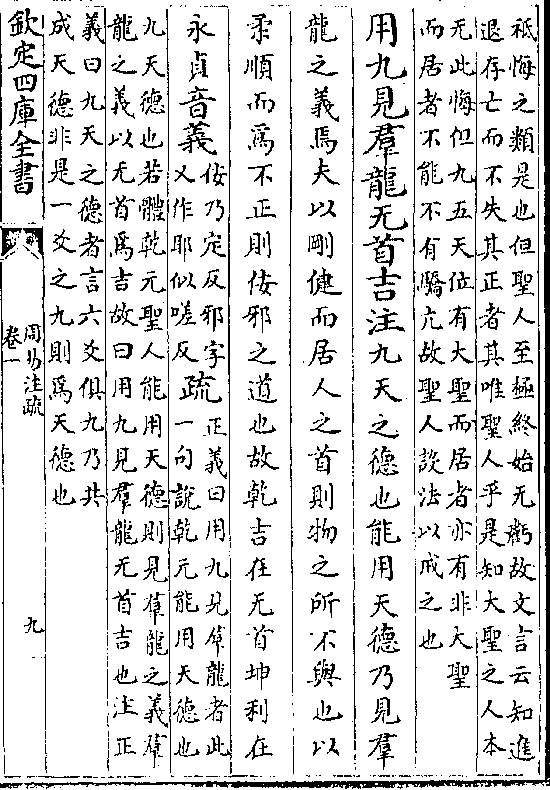 祗悔之類是也但聖人至極終始无虧故文言云知進
退存亡而不失其正者其唯聖人乎是知大聖之人本
无此悔但九五天位有大聖而居者亦有非大聖
而居者不能不有驕亢故聖人設法以戒之也
用九見羣龍无首吉注九天之德也能用天德乃見羣
龍之義焉夫以剛健而居人之首則物之所不與也以
柔順而爲不正則佞邪之道也故乾吉在无首坤利在
永貞音義
佞乃定反邪字
又作耶似嗟反
疏
正義曰用九見羣龍者此
一句說乾元能用天德也
九天德也若體乾元聖人能用天德則見羣龍之義羣
龍之義以无首爲吉故曰用九見羣龍无首吉也注正
義曰九天之德者言六爻俱九乃共
成天德非是一爻之九則爲天德也
欽定四庫全書
周易注疏
卷一
九